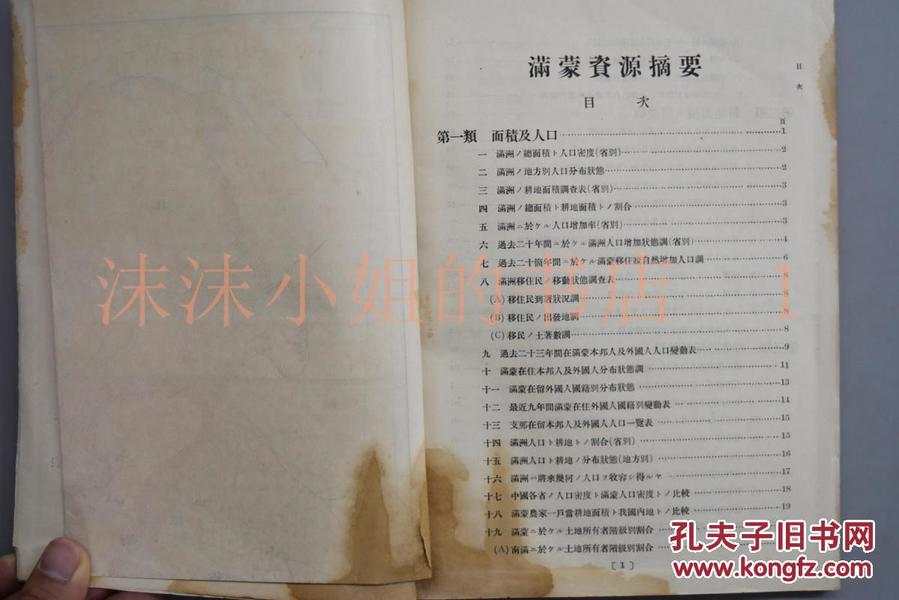 滿蒙資源摘要
目次
目　次
頁
第一類　面積及人口……1
一　滿洲ノ總面積ト人口密度(省別)……2
二　滿洲ノ地方別人口分布狀態……2
三　滿洲ノ耕地面積調査表(省別)……3
四　滿洲ノ總面積ト耕地面積トノ割合……3
五　滿洲ニ於ケル人口增加率(省別)……3
六　過去二十年間ニ於ケル滿洲人口增加狀態調(省別)……4
七　過去二十箇年間ニ於ケル滿蒙移住被自然增加人口調……6
八　滿洲移住民ノ移動狀態調査表……8
(A)移住民到著狀況調……8
(B)移住民ノ出發地調……8
(C)移民ノ土著數調……8
九　過去二十三年間在滿蒙本邦人及外國人人口變動表……9
十　滿蒙在住本邦人及外國人分布狀態調……11
十一　滿蒙在留外國人國籍別分布狀態……13
十二　最近九年間滿蒙在住外國人國籍別變動表……14
十三　支那在留本邦人及外國人人口一覽表……15
十四　滿洲人口ト耕地トノ割合(省別)……15
十五　滿洲人口ト耕地ノ分布狀態(地方別)……16
十六　滿洲ハ將來幾何ノ人口ヲ收容シ得ルヤ……17
十七　中國各省ノ人口密度ト滿蒙人口密度トノ比較……18
十八　滿蒙農家一戶當耕地面積ト我國內地トノ比較……19
十九　滿蒙ニ於ケル土地所有者階級別割合……
(A)南滿ニ於ケル土地所有者階級別割合……
[1]
沫沫小姐的书店　1
孔夫子旧书网
www.kongfz.com